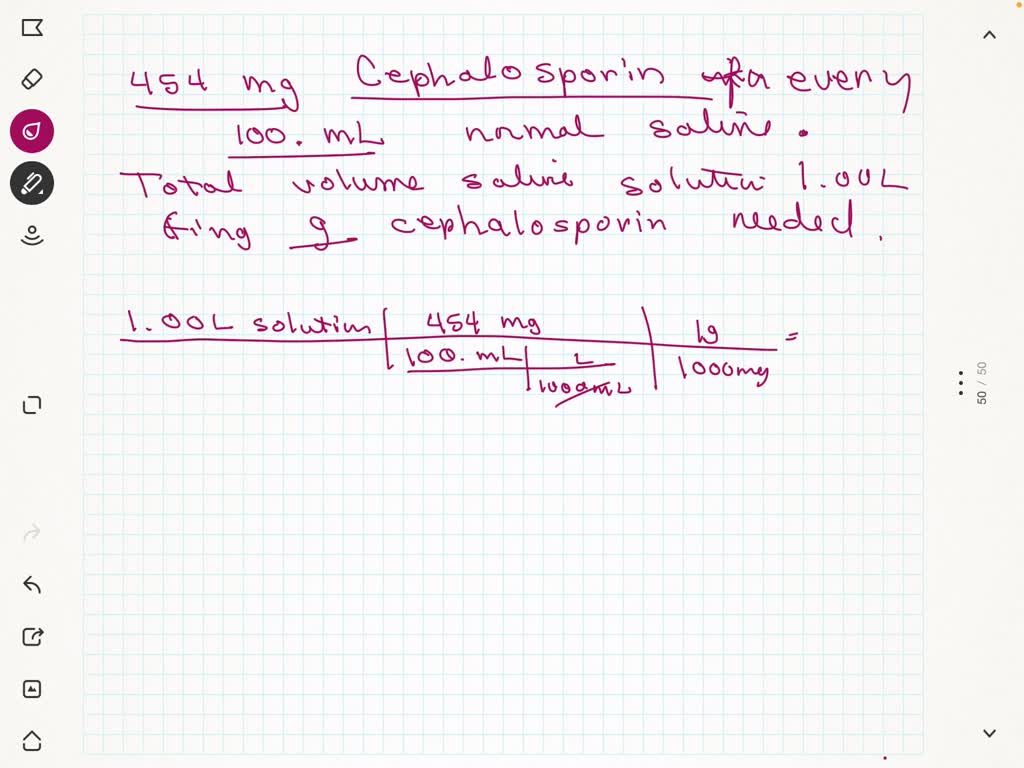 454 mg Cephalosporin for every
100. mL normal saline.
Total volume saline solution 1.00L
fing g cephalosporin needed.
1.00L solution 454 mg 1g =
100. mL L 1000mg
1000mL
50 / 50